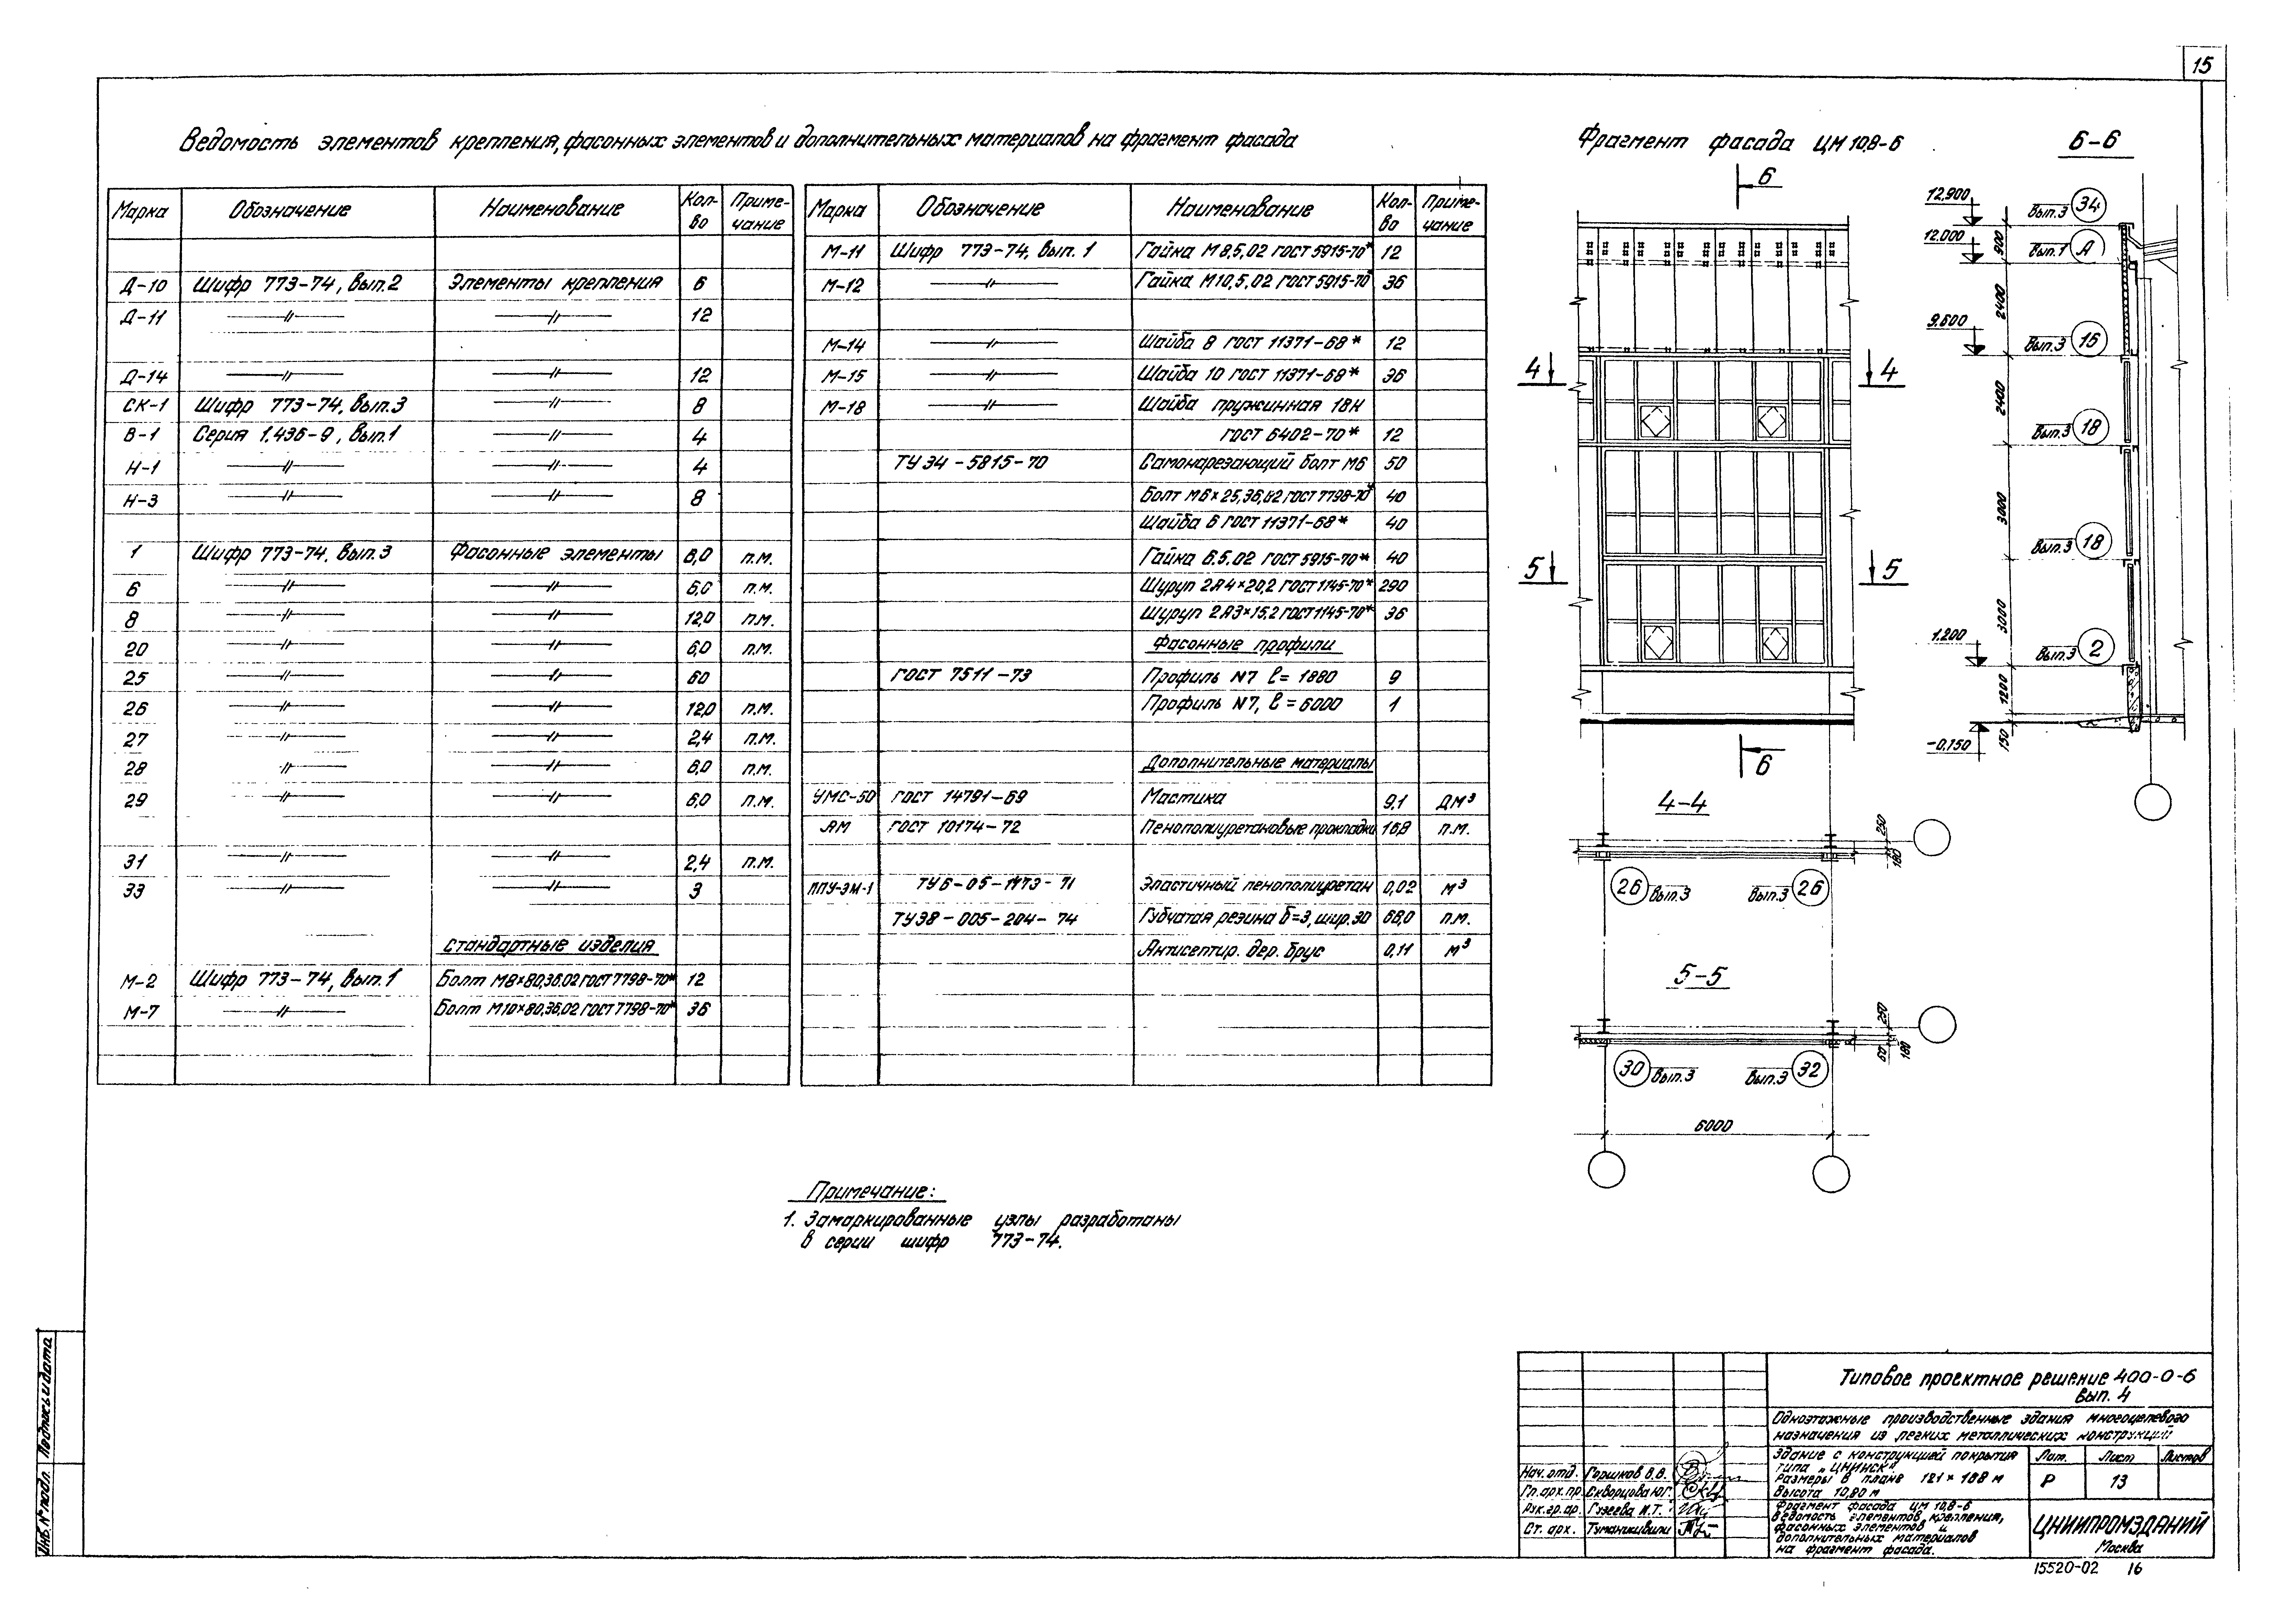 15
Ведомость элементов крепления, фасонных элементов и дополнительных материалов на фрагмент фасада
Марка Обозначение Наименование Кол-во Примечание
Д-10 Шифр 773-74, вып.2 Элементы крепления 6
Д-11 —//— —//— 12
Д-14 —//— —//— 12
СК-1 Шифр 773-74, вып.3 —//— 8
В-1 Серия 1.436-9, вып.1 —//— 4
Н-1 —//— —//— 4
Н-3 —//— —//— 8
1 Шифр 773-74, вып.3 Фасонные элементы 6,0 п.м.
6 —//— —//— 6,0 п.м.
8 —//— —//— 12,0 п.м.
20 —//— —//— 6,0 п.м.
25 —//— —//— 60
26 —//— —//— 12,0 п.м.
27 —//— —//— 2,4 п.м.
28 —//— —//— 6,0 п.м.
29 —//— —//— 6,0 п.м.
31 —//— —//— 2,4 п.м.
33 —//— —//— 3
Стандартные изделия
М-2 Шифр 773-74, вып.1 Болт М8×80,36.02 ГОСТ 7798-70* 12
М-7 —//— Болт М10×80,36.02 ГОСТ 7798-70* 36
Марка Обозначение Наименование Кол-во Примечание
М-11 Шифр 773-74, вып. 1 Гайка М8,5,02 ГОСТ 5915-70* 12
М-12 —//— Гайка М10,5,02 ГОСТ 5915-70* 36
М-14 —//— Шайба 8 ГОСТ 11371-68* 12
М-15 —//— Шайба 10 ГОСТ 11371-68* 36
М-18 —//— Шайба пружинная 18Н
ГОСТ 6402-70* 12
ТУ 34-5815-70 Самонарезающий болт М6 50
Болт М6×25,36,02 ГОСТ 7798-70* 40
Шайба 6 ГОСТ 11371-68* 40
Гайка 6.5.02 ГОСТ 5915-70* 40
Шуруп 2А4×20,2 ГОСТ 1145-70* 290
Шуруп 2А3×15,2 ГОСТ 1145-70* 36
Фасонные профили
ГОСТ 7511-73 Профиль N7 ℓ= 1880 9
Профиль N7, ℓ = 6000 1
Дополнительные материалы
УМС-50 ГОСТ 14791-69 Мастика 9,1 дм³
АМ ГОСТ 10174-72 Пенополиуретановые прокладки 16,8 п.м.
ППУ-ЭМ-1 ТУ6-05-1473-71 Эластичный пенополиуретан 0,02 м³
ТУ38-005-204-74 Губчатая резина δ=3, шир.30 68,0 п.м.
Антисептир. дер. брус 0,11 м³
Примечание:
1. Замаркированные узлы разработаны
в серии шифр 773-74.
Фрагмент фасада ЦМ 10,8-6
6
4 4
5 5
6
4-4
250
180
26 Вып.3 Вып.3 26
5-5
250
60 180
30 Вып.3 Вып.3 32
6000
6-6
12.900 Вып.3 34
12.000 900 Вып.1 А
2400
9.600 Вып.3 16
2400
Вып.3 18
3000
Вып.3 18
3000
1.200 Вып.3 2
1200
-0.150 150
Типовое проектное решение 400-0-6
вып. 4
Одноэтажные производственные здания многоцелевого
назначения из легких металлических конструкций
Здание с конструкцией покрытия
типа „ЦНИИСК"
Размеры в плане 121 × 168 м
Высота 10,80 м
Лит. Лист Листов
Р 13
Фрагмент фасада ЦМ 10,8-6
ведомость элементов крепления,
фасонных элементов и
дополнительных материалов
на фрагмент фасада.
ЦНИИПРОМЗДАНИЙ
Москва
Нач. отд. Горшков В.В.
Гл. арх. пр. Скворцова Ю.Г.
Рук. гр. ар. Гузеева И.Т.
Ст. арх. Туманишвили
15520-02 16
Инв. № подл. Подпись и дата